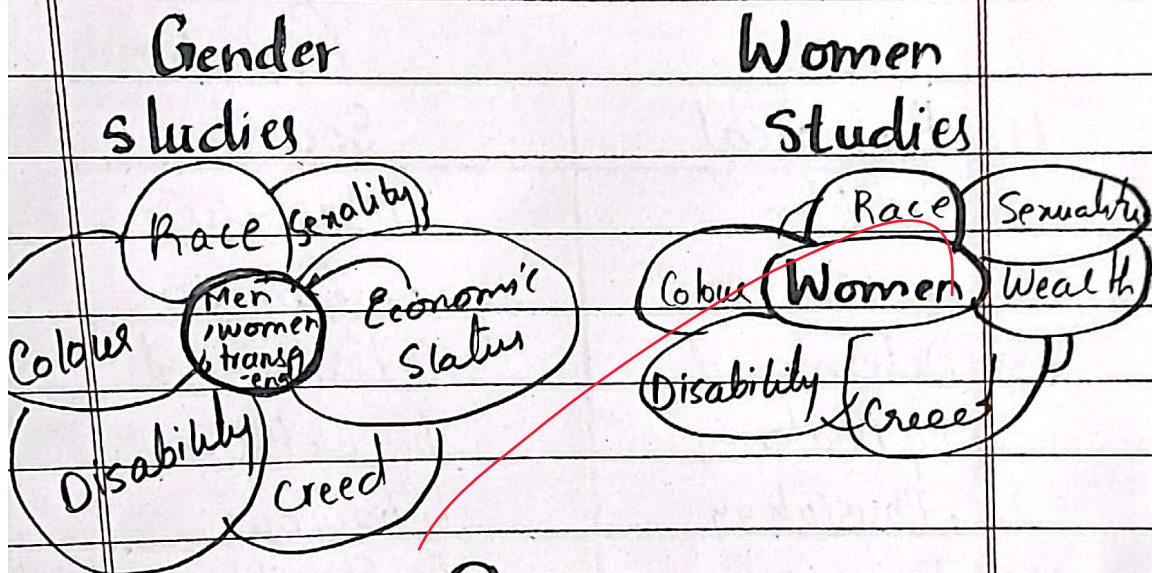 Gender
studies
Race
Sexality
Men
, women
, transg
-end
Economic
Status
Colour
Disability
Creed
Women
Studies
Race
Sexuality
Colour
Women
Wealth
Disability
Creed